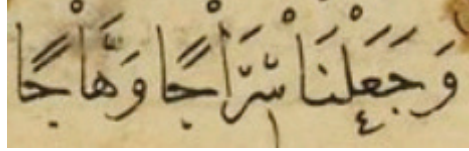 وَجَعَلْنَا سِرَّاجًا وَهَّاجًا